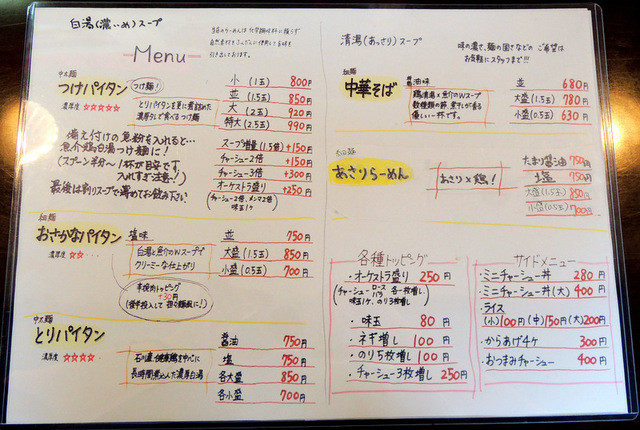 白湯(濃いめ)スープ
Menu
当店のらーめんは化学調味料に頼らず
中太麺
つけパイタン
つけ麺!
濃厚度 ★★★★★
とりパイタンを更に煮詰めた
濃厚ダレで食べるつけ麺
小 (1玉) 800円
並 (1.5玉) 850円
大 (2玉) 920円
特大(2.5玉) 990円
備え付けの魚粉を入れると…
魚介鶏白湯つけ麺に!
(スープン半分〜1杯が目安です
入れすぎ注意〜!)
最後は割りスープで薄めてお飲み下さい
スープ増量(1.5倍) +150円
チャーシュー2倍 +150円
チャーシュー3倍 +300円
オーケストラ盛り +250円
(チャーシュー2倍、メンマ2倍
味玉1ケ)
細麺
おさかなパイタン 塩味
濃厚度 ☆☆
白湯と魚介のWスープで
クリーミーな仕上がり
並 750円
大盛(1.5玉) 850円
小盛(0.5玉) 700円
辛味肉トッピング
+30円
中太麺
とりパイタン
濃厚度 ★★★★
長時間煮込んだ濃厚白湯
醤油 750円
塩 750円
各大盛 850円
各小盛 700円
清湯(あっさり)スープ
味の濃さ、麺の固さなどの ご希望は
お気軽にスタッフまで!!!
細麺
中華そば 醤油味
鶏清湯と魚介のWスープ
優しい一杯です。
並 680円
大盛(1.5玉) 780円
小盛(0.5玉) 630円
あさりらーめん
あさり×鶏!
たまり醤油 750円
塩 750円
大盛(1.5玉) 850円
小盛(0.5玉) 700円
各種トッピング
・オーケストラ盛り 250円
(チャーシュー ロース バラ 各一枚増し
味玉1ケ、のり3枚増し)
・味玉 80円
・ネギ増し 100円
・のり5枚増し 100円
・チャーシュー3枚増し 250円
サイドメニュー
・ミニチャーシュー丼 280円
・ミニチャーシュー丼(大) 400円
・ライス
(小)100円(中)150円(大)200円
・からあげ4ケ 300円
・おつまみチャーシュー 400円